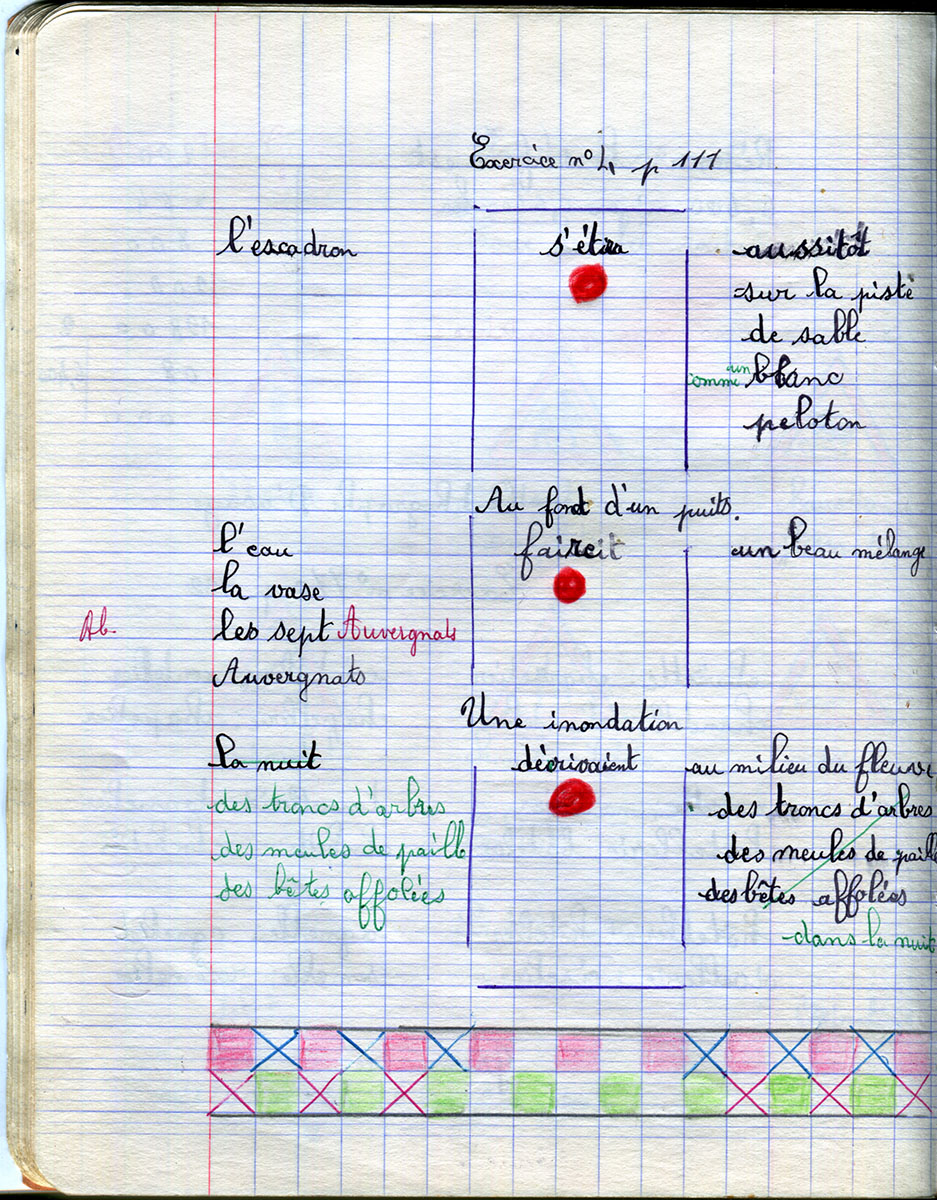 Exercice n° 4 p 111
l'escadron s'étira aussitôt
sur la piste
de sable
comme un blanc
peloton
Au fond d'un puits.
l'eau faisait un beau mélange
la vase
Ab. les sept Auvergnats
Auvergnats
Une inondation
la nuit décrivaient au milieu du fleuve
des troncs d'arbres des troncs d'arbres
des meules de paille des meules de paille
des bêtes affolées des bêtes affolées
dans la nuit